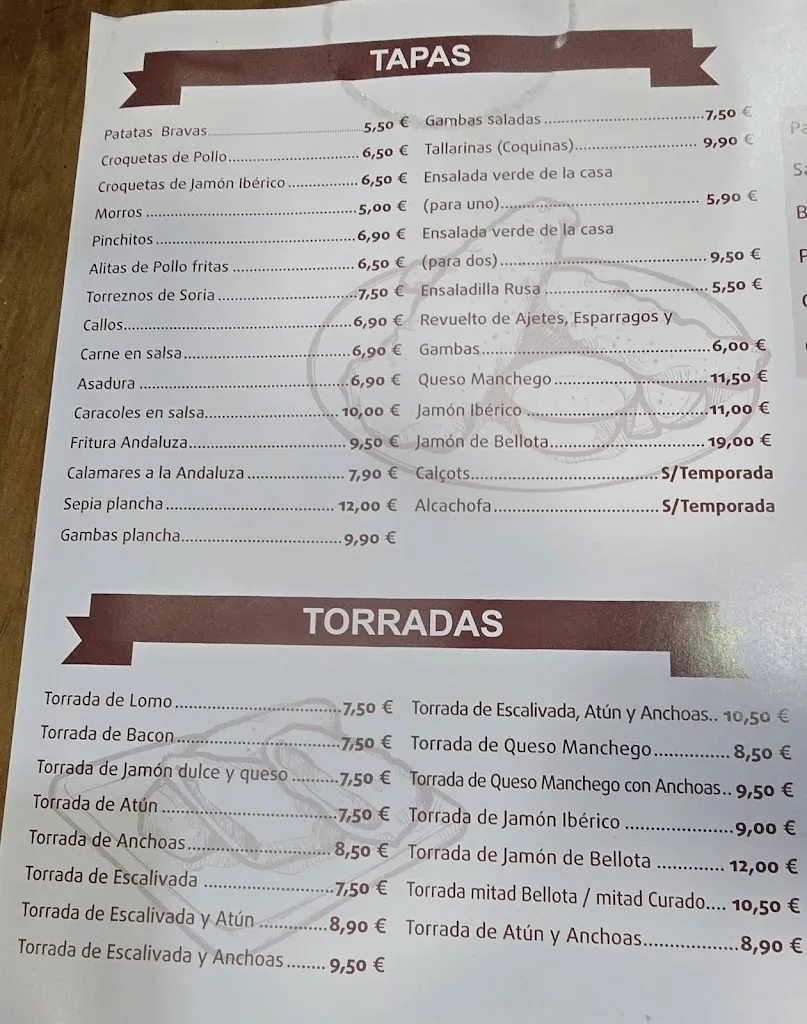 TAPAS
Patatas Bravas 5,50 €
Croquetas de Pollo 6,50 €
Croquetas de Jamón Ibérico 6,50 €
Morros 5,00 €
Pinchitos 6,90 €
Alitas de Pollo fritas 6,50 €
Torreznos de Soria 7,50 €
Callos 6,90 €
Carne en salsa 6,90 €
Asadura 6,90 €
Caracoles en salsa 10,00 €
Fritura Andaluza 9,50 €
Calamares a la Andaluza 7,90 €
Sepia plancha 12,00 €
Gambas plancha 9,90 €
Gambas saladas 7,50 €
Tallarinas (Coquinas) 9,90 €
Ensalada verde de la casa
(para uno) 5,90 €
Ensalada verde de la casa
(para dos) 9,50 €
Ensaladilla Rusa 5,50 €
Revuelto de Ajetes, Esparragos y
Gambas 6,00 €
Queso Manchego 11,50 €
Jamón Ibérico 11,00 €
Jamón de Bellota 19,00 €
Calçots S/Temporada
Alcachofa S/Temporada
TORRADAS
Torrada de Lomo 7,50 €
Torrada de Bacon 7,50 €
Torrada de Jamón dulce y queso 7,50 €
Torrada de Atún 7,50 €
Torrada de Anchoas 8,50 €
Torrada de Escalivada 7,50 €
Torrada de Escalivada y Atún 8,90 €
Torrada de Escalivada y Anchoas 9,50 €
Torrada de Escalivada, Atún y Anchoas.. 10,50 €
Torrada de Queso Manchego 8,50 €
Torrada de Queso Manchego con Anchoas.. 9,50 €
Torrada de Jamón Ibérico 9,00 €
Torrada de Jamón de Bellota 12,00 €
Torrada mitad Bellota / mitad Curado.... 10,50 €
Torrada de Atún y Anchoas 8,90 €